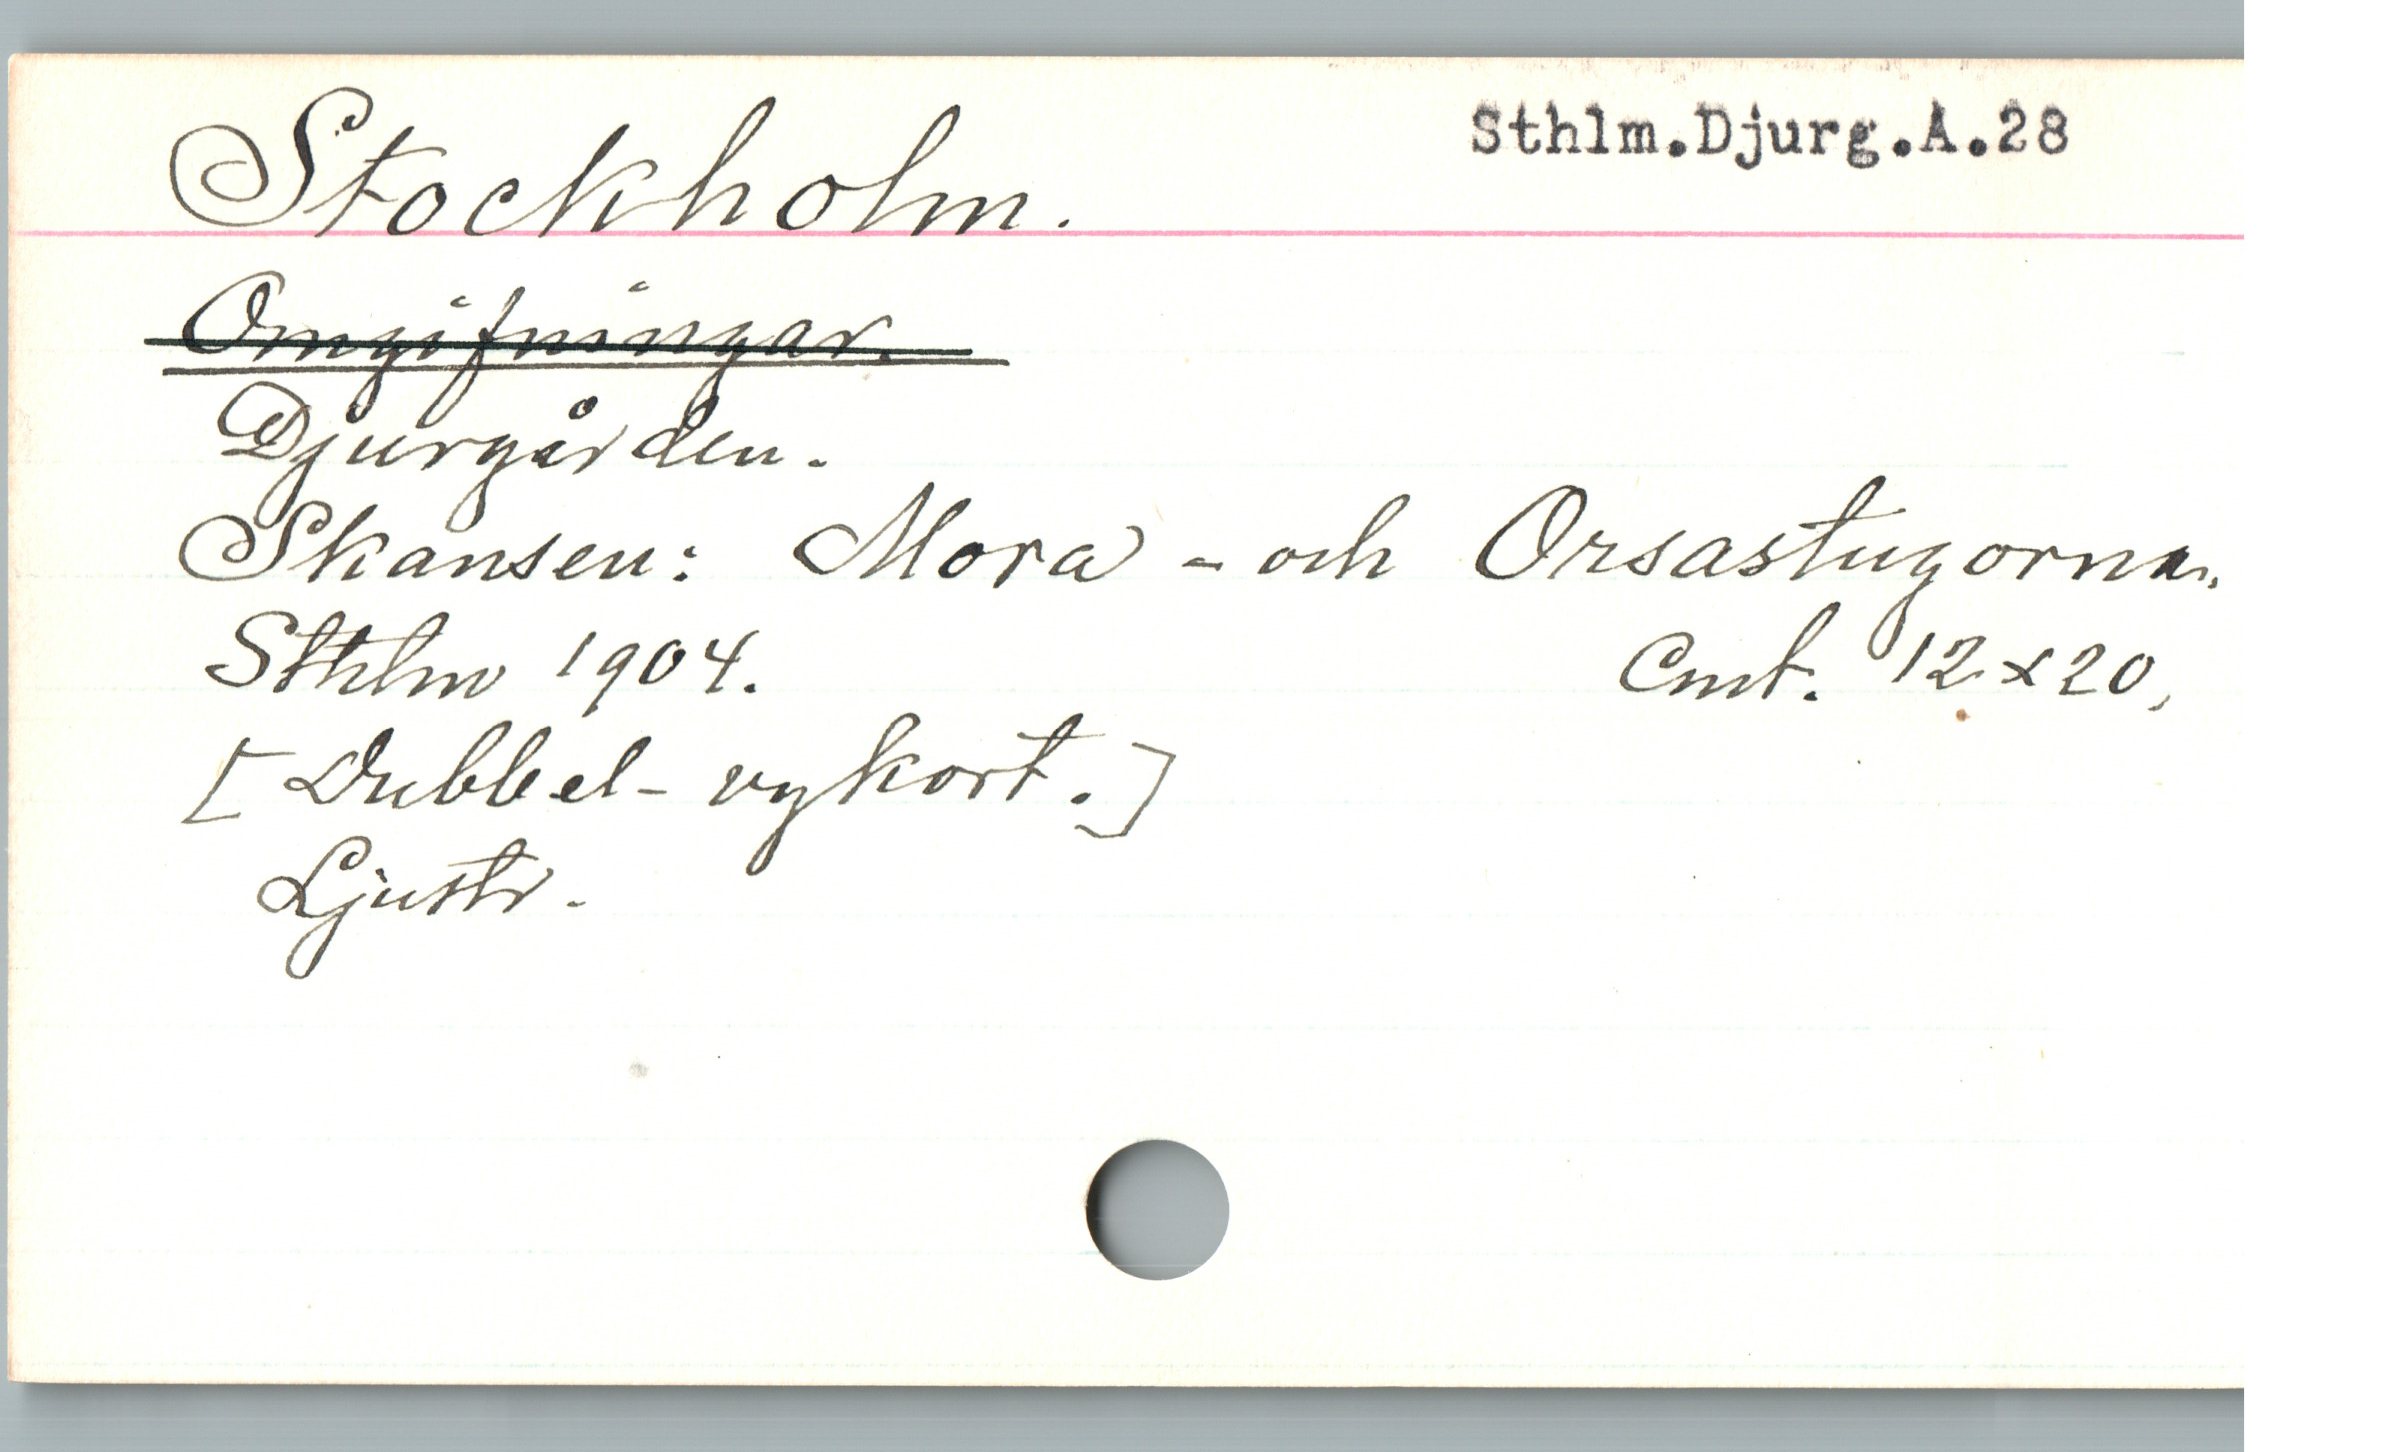 Stockholm. Sthlm.Djurg.A.28
Omgifningar.
Djurgården.
Skansen: Mora - och Orsastugorna.
Sthlm 1904. Cmt. 12x20,
[Dubbel- vykort.]
Ljustr.